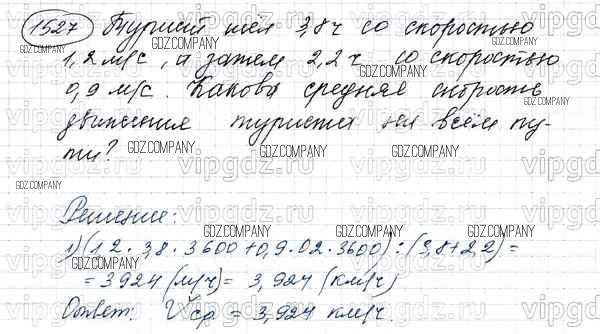 1527 Турист шёл 3,8 ч со скоростью
1,2 м/с, а затем 2,2 ч со скоростью
0,9 м/с. Какова средняя скорость
движения туриста на всём пу-
ти?
Решение:
1) (1 2 · 3,8 · 3600 + 0,9 · 02 · 3600) : (3,8 + 2,2) =
= 3924 (м/ч) = 3,924 (км/ч)
Ответ: Vср = 3,924 км/ч.
GDZ.COMPANY
vipgdz.ru